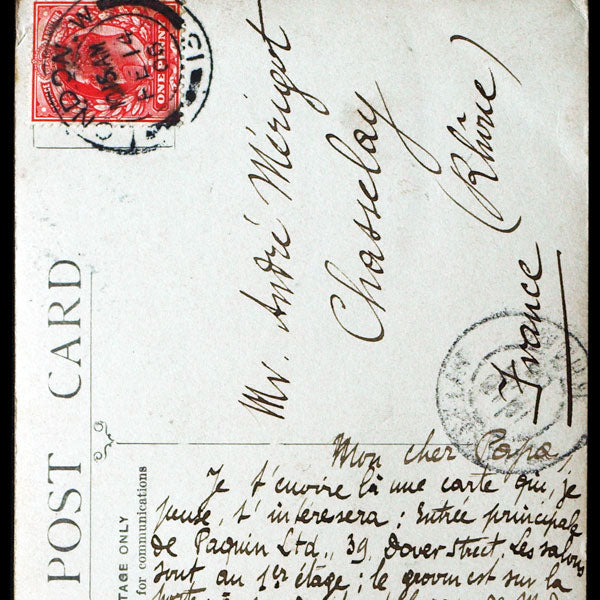 POST CARD
ONE PENNY
NDON W
10 15 AM
FE 14
06
Mr. André Mérigot
Chasselay
(Rhône)
France
TAGE ONLY
for communications
Mon cher Papa,
Je t'envoire là une carte qui, je
pense, t'interesera : Entrée principale
de Paquin Ltd., 39, Dover Street. Les salons
sont au 1er étage ; le groom est sur la